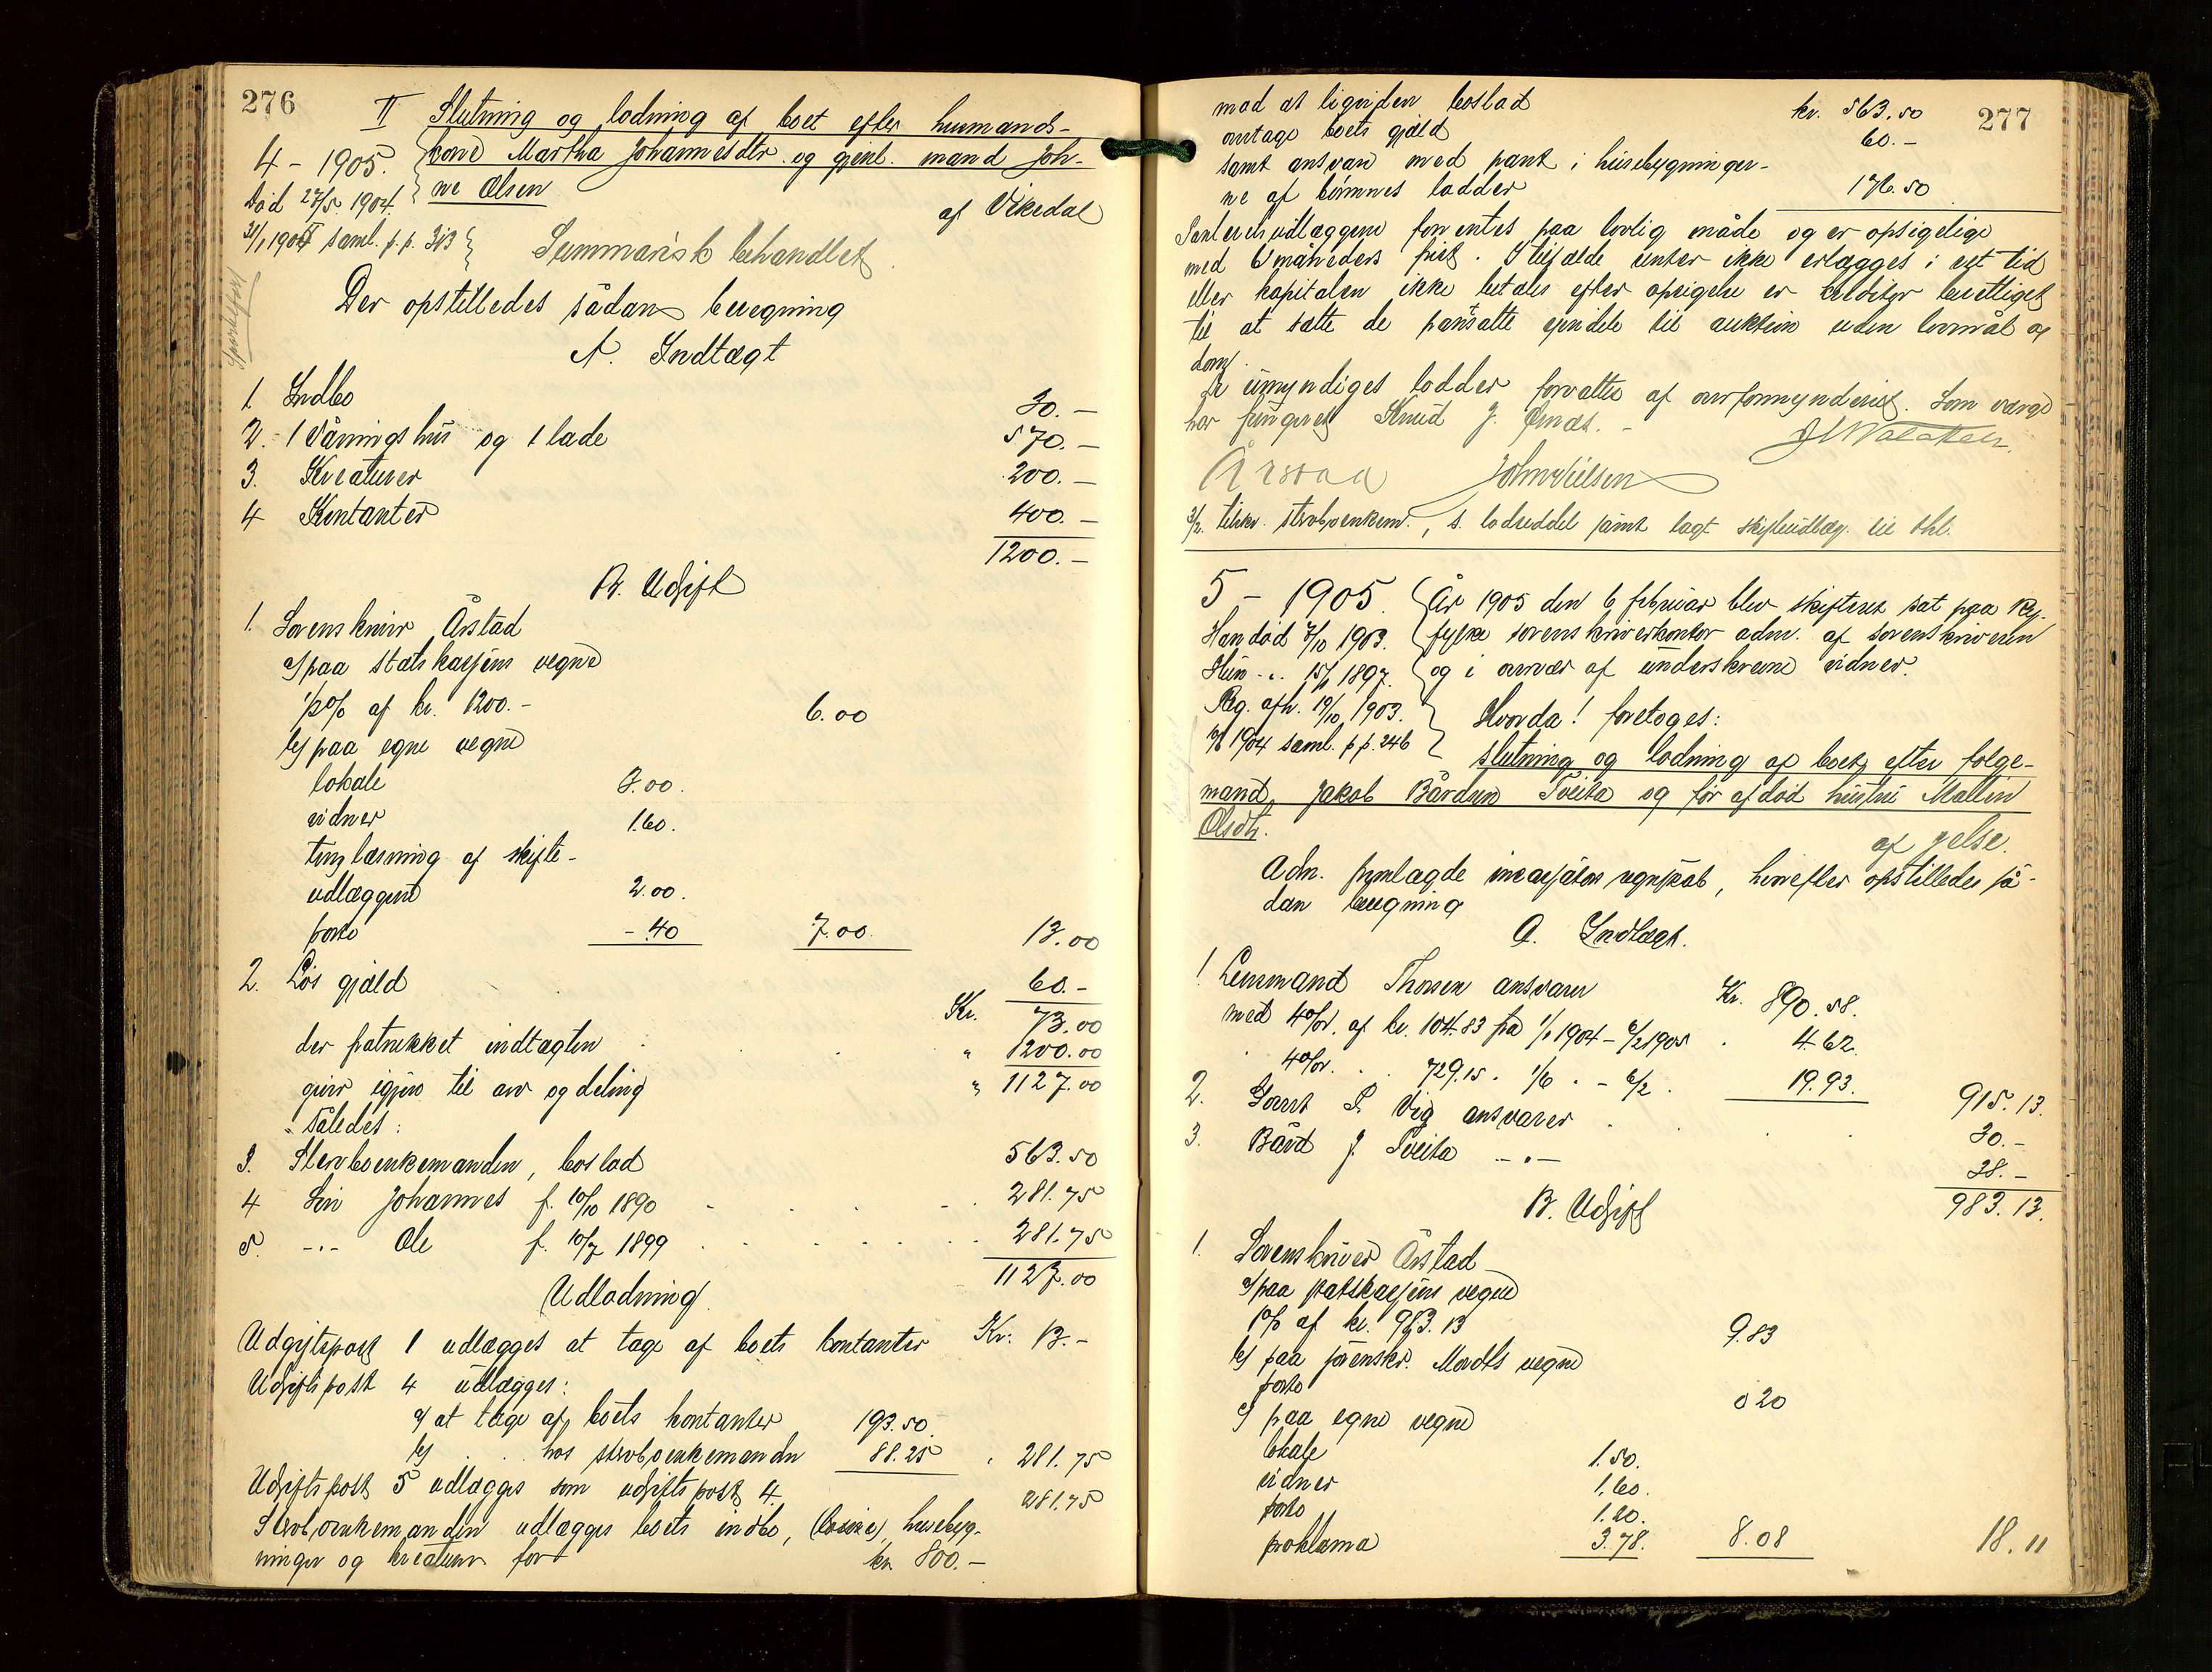 276
II Slutning og lodning af boet efter husmands-
4 - 1905. kone Martha Johannesdtr. og gjenl. mand Joh-
Død 27/5 1904. ne Olsen
af Vikedal
31/1 1905 saml. p.p. 313
Summarisk behandlet.
Der opstilledes sådan beregning
A. Indtægt
1. Indbo 30.-
2. 1 Våningshus og 1 lade 570.-
3. Kreaturer 200.-
4 Kontanter 400.-
1200.-
B. Udgift
1. Sorenskriver Årstad
a) paa statskassens vegne
1/2 % af kr. 1200.- 6.00
b) paa egne vegne
lokale 3.00.
vidner 1.60.
tinglæsning af skifte-
udlæggene 2.00.
porto -.40 7.00 13.00
2. Løs gjæld 60.-
Kr. 73.00
der fratrukket indtægten " 1200.00
giver igjen til arv og deling " 1127.00
således:
3. Sterboenkemanden, boslod 563.50
4 Søn Johannes f. 10/10 1890 281.75
5. -"- Ole f. 10/7 1899 281.75
1127.00
Udlodning
Udgiftspost 1 udlægges at tage af boets kontanter Kr. 13.-
Udgiftspost 4 udlægges:
a) at tage af boets kontanter 193.50
b) hos sterboenkemanden 88.25 281.75
Udgiftspost 5 udlægges som udgiftspost 4. 281.75
Sterboenkemanden udlægges boets indbo, husebyg-
ninger og kreaturer for kr. 800.-
277
mod at ligviden boslod kr. 563.50
antage boets gjæld 60.-
samt ansvar med pant i husebygninger-
ne af børnnes lodder 176.50
Panteudlæggene forrentes paa lovlig måde og er opsigelige
med 6 måneders frist. I tilfælde renter ikke erlægges i ret tid
eller kapitalen ikke betales efter opsigelse er kreditor berettiget
til at sætte de pantsatte eiendele til auktion uden lovmål og
dom.
De umyndiges lodder forvaltes af overformynderiet. Som værge
har fungeret Knud J.
Årstad John Nielsen
3/2. tilkr. sterboenkem., s. lodseddel samt lagt skifteudlæg. til thl.
5 - 1905. År 1905 den 6 februar blev skifteret sat paa Ry-
Han død 7/10 1903. fylke sorenskriverkontor adm. af sorenskriveren
Hun -"- 15/1 1897. og i overvær af underskrevne vidner.
Reg. afh. 19/10 1903. Hvorda! foretoges:
1904 saml. p.p. 246
slutning og lodning af boet efter følge-
mand, Jakob Bårdsen Tveita og før afdød hustru Mallin
Olsdtr.
af Jelse.
Adm. fremlagde incassators regnskab, hvorefter opstilledes så-
dan beregning
A. Indtægt.
1 Lensmand Thorsen ansvarer Kr. 890.58.
med 4 % af kr. 104.83 fra 1/1 1904 - 6/2 1905 . 4.62.
4 % . . 729.15 . 1/6 . - 6/2 . 19.93. 915.13.
2. Vig ansvarer 30.-
3. Bård J. Tveita -"- 38.-
983.13.
B. Udgift
1. Sorenskriver Årstad
a) paa statskassens vegne
1 % af kr. 983.13 9.83
b) paa vegne
porto 0 20
c) paa egne vegne
lokale 1.50.
vidner 1.60.
porto 1.20.
proklama 3.78. 8.08 18.11